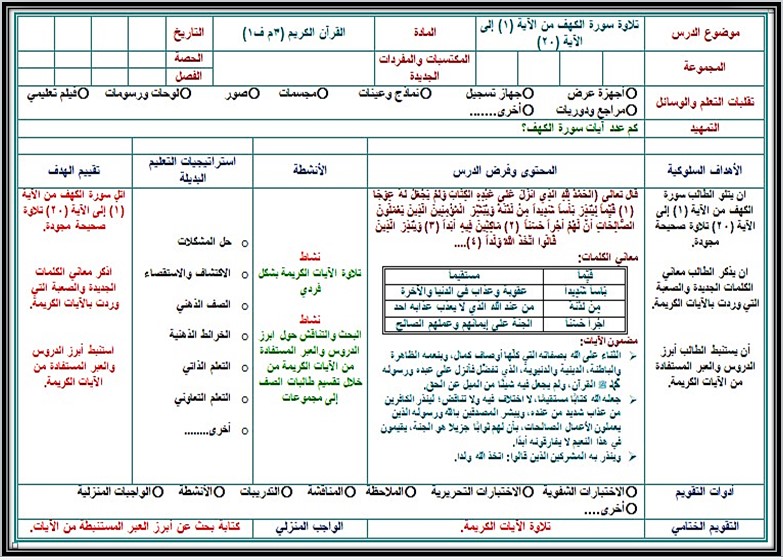 موضوع الدرس
تلاوة سورة الكهف من الآية (١) إلى
الآية (٢٠)
المادة
القرآن الكريم (م٣ ف١)
التاريخ
المجموعة
المكتسبات والمفردات
الجديدة
الحصة
الفصل
تقنيات التعلم والوسائل
أجهزة عرض
جهاز تسجيل
نماذج وعينات
مجسمات
صور
لوحات ورسومات
فيلم تعليمي
مراجع ودوريات
أخرى.......
التمهيد
كم عدد آيات سورة الكهف؟
الأهداف السلوكية
المحتوى وفرض الدرس
الأنشطة
استراتيجيات التعليم
البديلة
تقييم الهدف
ان يتلو الطالب سورة
الكهف من الآية (١) إلى
الآية (٢٠) تلاوة صحيحة
مجودة.
ان يذكر الطالب معاني
الكلمات الجديدة والصعبة
التي وردت بالآيات الكريمة.
أن يستنبط الطالب أبرز
الدروس والعبر المستفادة
من الآيات الكريمة.
قال تعالى (الحَمْدُ لِلَّهِ الَّذِي أَنْزَلَ عَلَى عَبْدِهِ الْكِتَابَ وَلَمْ يَجْعَلْ لَهُ عِوَجًا
(١) قَيِّمًا لِيُنْذِرَ بَأْسًا شَدِيدًا مِنْ لَدُنْهُ وَيُبَشِّرَ الْمُؤْمِنِينَ الَّذِينَ يَعْمَلُونَ
الصَّالِحَاتِ أَنَّ لَهُمْ أَجْرًا حَسَنًا (٢) مَاكِثِينَ فِيهِ أَبَدًا (٣) وَيُنْذِرَ الَّذِينَ
قَالُوا اتَّخَذَ اللَّهُ وَلَدًا (٤)....
معاني الكلمات:
قَيِّمًا
مستقيما
بَأْسًا شَدِيدًا
عقوبة وعذاب في الدنيا والآخرة
مِن لَدُنْهُ
من عند الله الذي لا يعذب عذابه احد
أَجْرًا حَسَنًا
الجنة على إيمانهم وعملهم الصالح
مضمون الآيات:
الثناء على الله بصفاته التي كلها أوصاف كمال، وبنعمه الظاهرة
والباطنة، الدينية والدنيوية، الذي تفضَّل فأنزل على عبده ورسوله
محمد ﷺ القرآن، ولم يجعل فيه شيئًا من الميل عن الحق.
جعله الله كتابًا مستقيمًا، لا اختلاف فيه ولا تناقض؛ لينذر الكافرين
من عذاب شديد من عنده، ويبشر المصدقين بالله ورسوله الذين
يعملون الأعمال الصالحات، بأن لهم ثوابًا جزيلا هو الجنة، يقيمون
في هذا النعيم لا يفارقونه أبدًا.
وينذر به المشركين الذين قالوا: اتخذ الله ولدا.
نشاط
تلاوة الآيات الكريمة بشكل
فردي
نشاط
البحث والتناقش حول ابرز
الدروس والعبر المستفادة
من الآيات الكريمة من
خلال تقسيم طالبات الصف
إلى مجموعات
حل المشكلات
الاكتشاف والاستقصاء
العصف الذهني
الخرائط الذهنية
التعلم الذاتي
التعلم التعاوني
أخرى........
اتل سورة الكهف من الآية
(١) إلى الآية (٢٠) تلاوة
صحيحة مجودة.
اذكر معاني الكلمات
الجديدة والصعبة التي
وردت بالآيات الكريمة.
استنبط أبرز الدروس
والعبر المستفادة من
الآيات الكريمة.
أدوات التقويم
الاختبارات الشفوية
الاختبارات التحريرية
الملاحظة
المناقشة
التدريبات
الأنشطة
الواجبات المنزلية
أخرى....
التقويم الختامي
تلاوة الآيات الكريمة.
الواجب المنزلي
كتابة بحث عن أبرز العبر المستنبطة من الآيات.